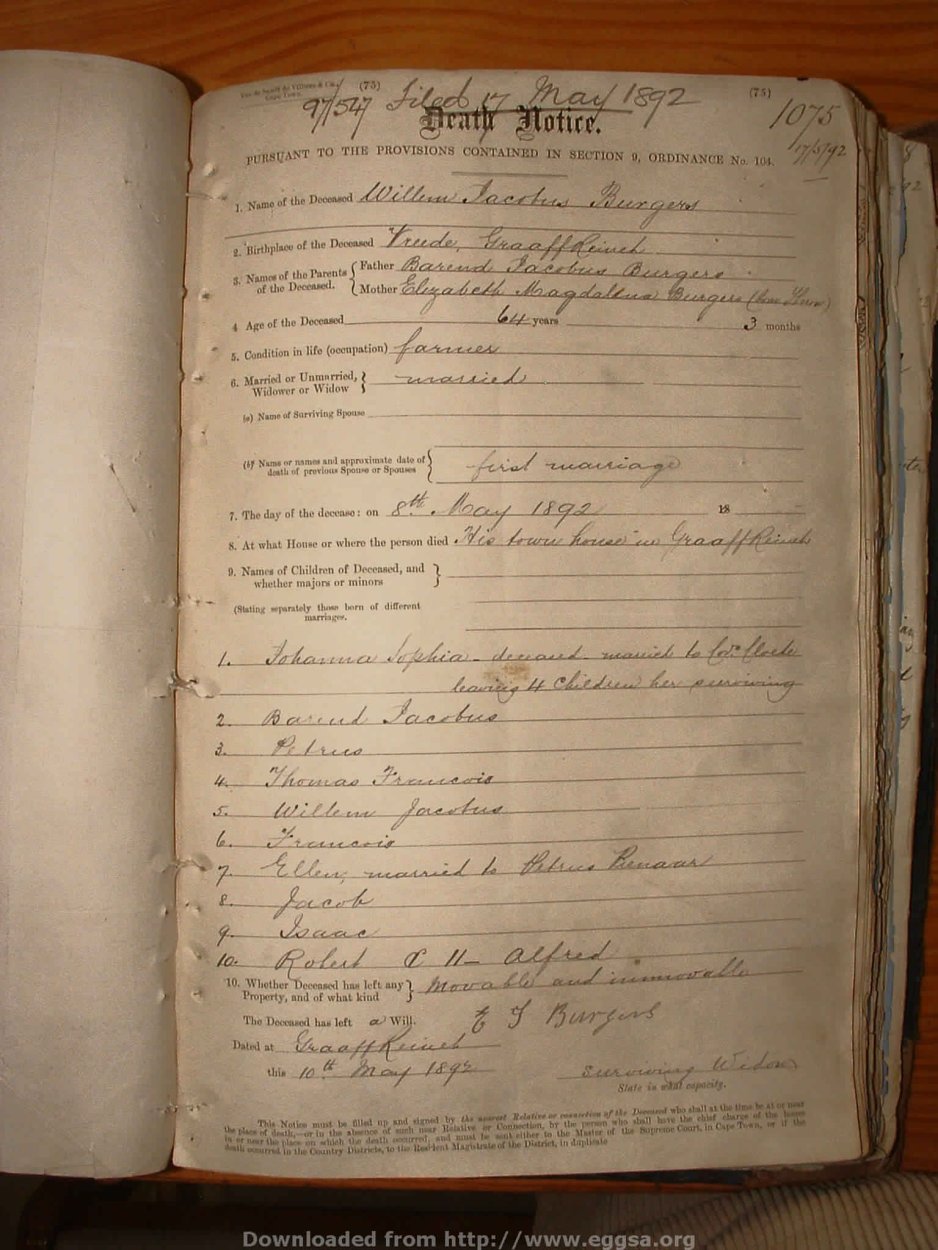 Van de Sandt de Villiers & Co.,
Cape Town.
(75)
(75)
97/547 Filed 17 May 1892
1075
17/5/92
Death Notice.
PURSUANT TO THE PROVISIONS CONTAINED IN SECTION 9, ORDINANCE No. 104.
1. Name of the Deceased Willem Jacobus Burgers
2. Birthplace of the Deceased Vreede, Graaff Reinet
3. Names of the Parents of the Deceased. { Father Barend Jacobus Burgers
Mother Elizabeth Magdalena Burgers (born
4 Age of the Deceased 64 years 3 months
5. Condition in life (occupation) farmer
6. Married or Unmarried, Widower or Widow } married
(a) Name of Surviving Spouse
(b) Name or names and approximate date of death of previous Spouse or Spouses } first marriage
7. The day of the decease: on 8th May 1892 18
8. At what House or where the person died His town house in Graaff Reinet
9. Names of Children of Deceased, and whether majors or minors }
(Stating separately those born of different marriages.
1. Johanna Sophia deceased married to Cloete
leaving 4 children her surviving
2. Barend Jacobus
3. Petrus
4. Thomas Francois
5. Willem Jacobus
6. Francois
7. Ellen, married to Petrus Pienaar
8. Jacob
9. Isaac
10. Robert C H Alfred
10. Whether Deceased has left any Property, and of what kind } Movable and immovable
The Deceased has left a Will.
E J Burgers
Dated at Graaff Reinet
this 10th May 1892
surviving Widow
State in what capacity.
This Notice must be filled up and signed by the nearest Relative or connection of the Deceased who shall at the time be at or near
the place of death,—or in the absence of such near Relative or Connection, by the person who shall have the chief charge of the house
in or near the place on which the death occurred, and must be sent either to the Master of the Supreme Court, in Cape Town, or if the
death occurred in the Country Districts, to the Resident Magistrate of the District, in duplicate
Downloaded from http://www.eggsa.org